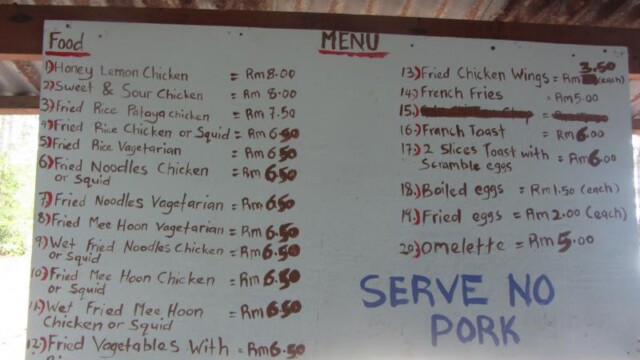 Food
MENU
1) Honey Lemon Chicken = Rm 8.00
2) Sweet & Sour Chicken = Rm 8.00
3) Fried Rice Pataya chicken = Rm 7.50
4) Fried Rice Chicken or Squid = Rm 6.50
5) Fried Rice Vagetarian = Rm 6.50
6) Fried Noodles Chicken = Rm 6.50
or Squid
7) Fried Noodles Vagetarian = Rm 6.50
8) Fried Mee Hoon Vagetarian = Rm 6.50
9) Wet Fried Noodles Chicken = Rm 6.50
or Squid
10) Fried Mee Hoon Chicken = Rm 6.50
or Squid
11) Wet Fried Mee Hoon = Rm 6.50
Chicken or Squid
12) Fried Vegetables With = Rm 6.50
13) Fried Chicken Wings = Rm 3.50 (each)
14) French Fries = Rm 5.00
15)
16) Franch Toast = Rm 6.00
17) 2 Slices Toast with = Rm 6.00
Scramble eggs
18) Boiled eggs = Rm 1.50 (each)
19) Fried eggs = Rm 2.00 (each)
20) Omelette = Rm 5.00
SERVE NO
PORK